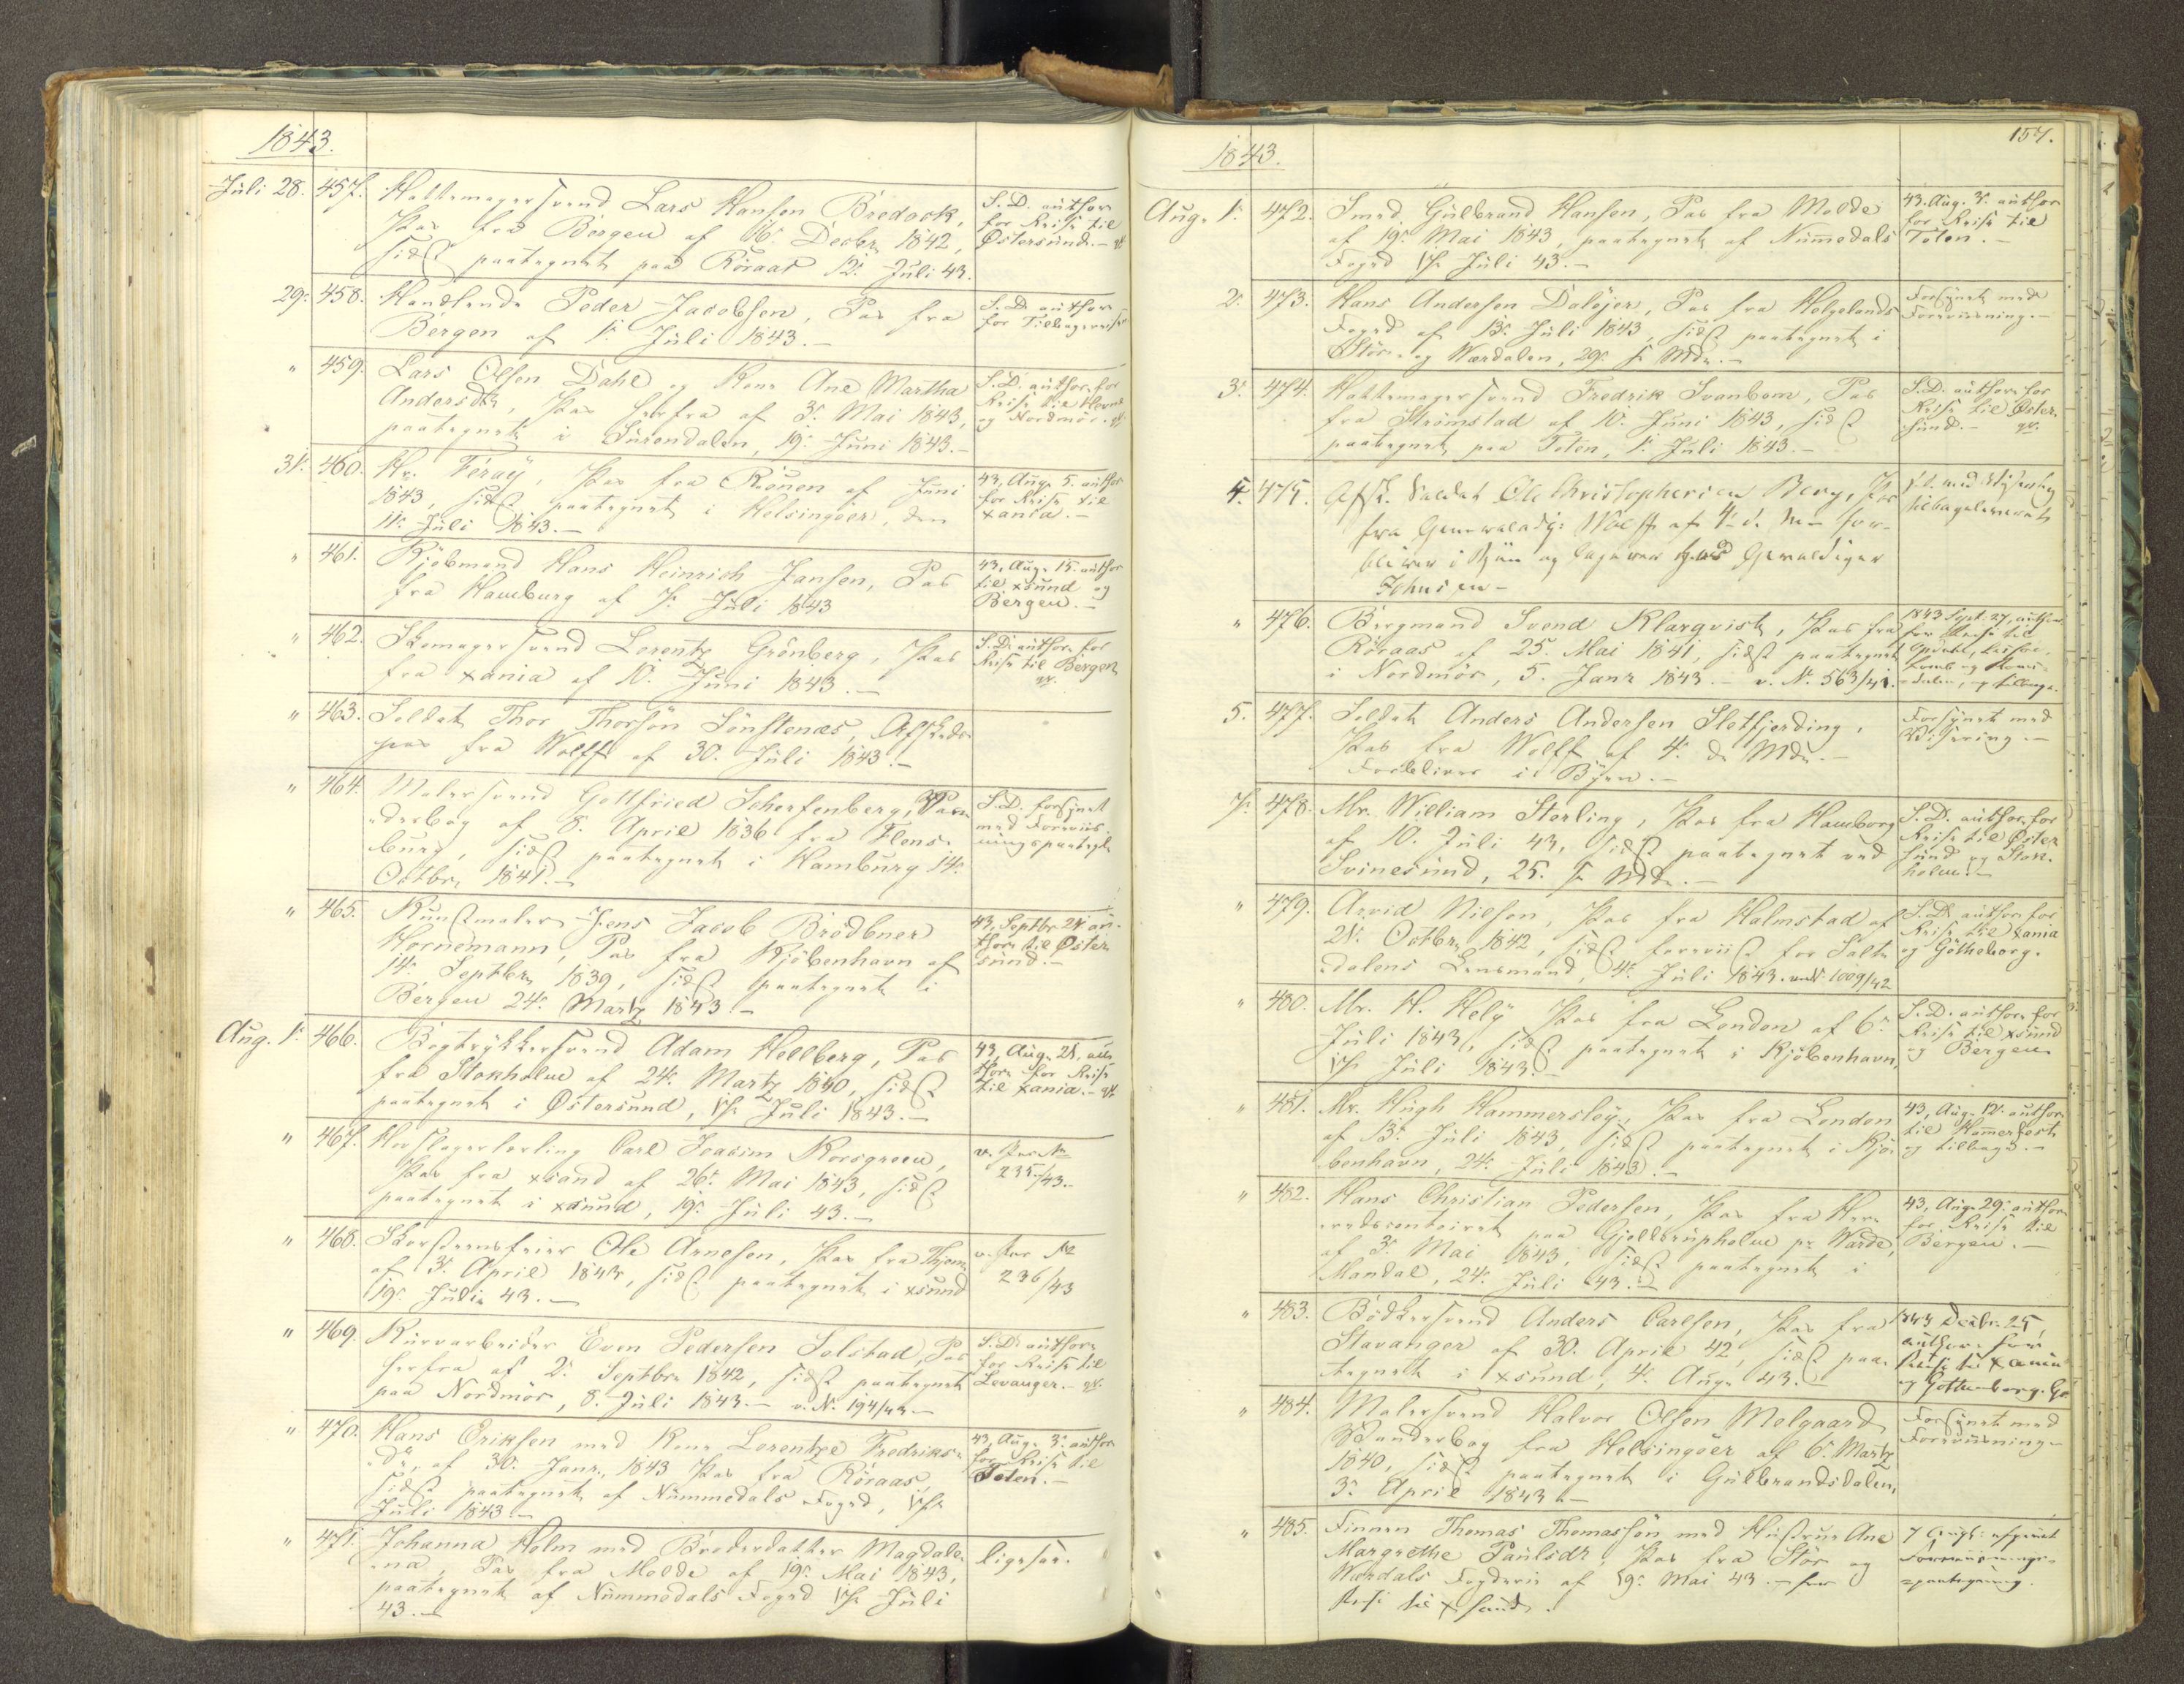 1843.
Juli 28. 457. Hattemagersvend Lars Hansen Bredock,
Pas fra Bergen af 16. Decbr. 1842,
sidst paategnet paa Röraas 12. Juli 43.
S. D. author.
for Reise til
Östersund. -
29. 458. Handlende Peder Jacobsen, Pas fra
Bergen af 1. Juli 1843. -
S. D. author.
for Tilbagereise
" 459. Lars Olsen Dahl og Kone Ane Martha
Andersdtr, Pas herfra af 3. Mai 1843,
paategnet i Surendalen, 19. Juni 1843. -
S. D. author. for
Reise til Hevne
og Nordmör.
31. 460. Hr. Feray, Pas fra Rouen af Juni
1843, sidst paategnet i Helsingöer, den
11. Juli 1843. -
43, Aug. 5. author
for Reise til
xania. -
" 461. Kjöbmand Hans Heinrich Jansen, Pas
fra Hamburg af 7. Juli 1843
43, Aug. 15. author
til xsund og
Bergen. -
" 462. Skomagersvend Lorentz Grönberg, Pas
fra xania af 10. Juni 1843. -
S. D. author. for
Reise til Bergen
" 463. Soldat Thor Thorsön Sönstenæs, Afskeds-
pas fra Wolff af 30. Juli 1843. -
" 464. Malersvend Gottfried Scherfenberg, Van-
derbog af 8. April 1836 fra Flens-
burg, sidst paategnet i Hamburg 14.
Octbr. 1841. -
S. D. forsynet
med Foreviis-
ningspaategn.
" 465. Kunstmaler Jens Jacob Brödbner
Hornemann, Pas fra Kjöbenhavn af
14. Septbr. 1839, sidst paategnet i
Bergen 24. Martz 1843 -
43, Septbr. 21 au-
thor. til Öster
sund. -
Aug. 1. 466. Bogtrykkersvend Adam Hellberg, Pas
fra Stokholm af 24. Martz 1840, sidst
paategnet i Östersund, 17. Juli 1843. -
43, Aug. 21, au-
thor. for Reise
til xania. -
" 467. Hovslagerlærling Carl Joacim Korsgreen,
Pas fra xsand af 26. Mai 1843, sidst
paategnet i xsund, 19. Juli 43. -
v. Pas No
235/43. -
" 468. Skorsteensfeier Ole Arnesen, Pas fra Thjem
af 3. April 1843, sidst paategnet i xsund
19. Juli 43. -
v. Pas No
236/43
" 469. Rurvarbeider Even Pedersen Selstad, Pas
herfra af 2. Septbr. 1842, sidst paategnet
paa Nordmör, 8. Juli 1843 - v. N. 194/43 -
S. D. author.
for Reise til
Levanger. -
" 470. Hans Eriksen med Kone Lorentze Fredriks-
dr., af 30. Janr. 1843 Pas fra Röraas,
sidst paategnet af Nummedals Foged, 17.
Juli 1843 -
43, Aug. 3. author
for Reise til
Toten. -
" 471. Johanna Holm med Broderdatter Magdale-
na, Pas fra Molde af 19. Mai 1843,
paategnet af Nummedals Foged 17. Juli
43. -
ligesaa.
157.
1843.
Aug. 1. 472. Smed Gulbrand Hansen, Pas fra Molde
af 19. Mai 1843, paategnet af Nummedals
Foged 17. Juli 43. -
43. Aug. 3. author
for Reise til
Toten. -
2. 473. Hans Andersen Dolöjer, Pas fra Helgelands
Foged af 13. Juli 1843, sidst paategnet i
Stör- og Wærdalen, 29. f. Md. -
Forsynet med
Foreviisning. -
3. 474. Hattemagersvend Fredrik Svanbom, Pas
fra Strömstad af 10. Juni 1843, sidst
paategnet paa Toten, 1. Juli 1843. -
S. D. author. for
Reise til Öster-
sund. -
4. 475. Afsk. Soldat Ole Christophersen Berg, Pas
fra Generaladj: Wolff af 4. d. M. - for-
bliver i Byen og logerer hos Gevaldiger
Johnsen -
tilbageleveret
" 476. Bergmand Svend Klarqvist, Pas fra
Röraas af 25. Mai 1841, sidst paategnet
i Nordmör, 5. Janr. 1843 - v. No. 563/41.
1843 Sept. 27, author
for Reise til
Opdal,
og Roms-
dalen, og tilbage.
5. 477. Soldat Anders Andersen Sletfjerding,
Pas fra Wolff af 4. d. Md. -
Forbliver i Byen. -
Forsynet med
Visering. -
7. 478. Mr. William Sterling, Pas fra Hamborg
af 10. Juli 43, sidst paategnet ved
Svinesund, 25. f. Md. -
S. D. author. for
Reise til Öster
sund og Stok-
holm. -
" 479. Arvid Nilson, Pas fra Halmstad af
21. Octbr. 1842, sidst foreviist for Salt-
dalens Lensmand, 4. Juli 1843. v. N. 1009/42
S. D. author. for
Reise til xania
og Götheborg.
" 480. Mr. H. Hely Pas fra London af 6.
Juli 1843, sidst paategnet i Kjöbenhavn,
17. Juli 1843. -
S. D. author. for
Reise til xsund
og Bergen
" 481. Mr. Hugh Hammersley, Pas fra London
af 13. Juli 1843, sidst paategnet i Kjö-
benhavn, 24. Juli 1843. -
43, Aug. 12. author.
til Hammerfest
og tilbage. -
" 482. Hans Christian Pedersen, Pas fra Her-
redscontoiret paa Gjellerupholm pr. Warde,
af 3. Mai 1843, sidst paategnet i
Mandal, 24. Juli 43. -
43, Aug. 29. author.
for Reise til
Bergen. -
" 483. Bödkersvend Anders Carlsen, Pas fra
Stavanger af 30. April 42, sidst paa-
tegnet i xsund, 4. Aug. 43. -
1843 Decbr. 25,
author. for
Reise til xania
og Gothenborg.
" 484. Malersvend Halvor Olsen Melgaard
Wanderbog fra Helsingöer af 6. Martz
1840, sidst paategnet i Gulbrandsdalen,
3. April 1843. -
Forsynet med
Foreviisning -
" 485. Finnen Thomas Thomassön med Hustrue Ane
Margrethe Paulsdr, Pas fra Stör og
Wærdals Fogderie af 19. Mai 43. - for
Reise til xsund.
7
Foreviisnings-
paategning.